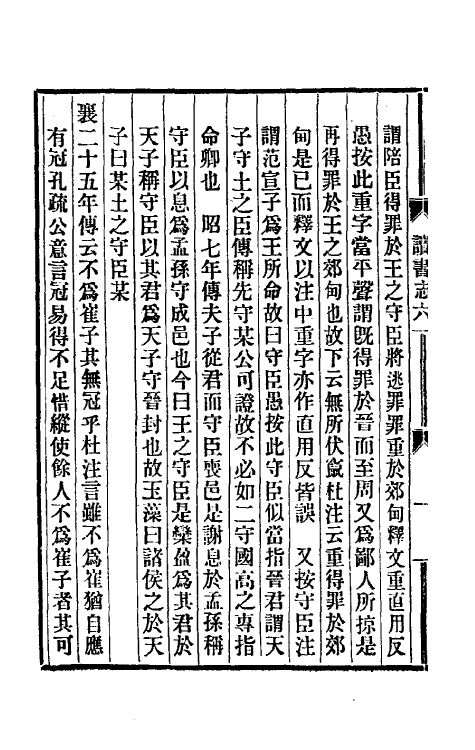 謂陪臣得罪於王之守臣將逃罪罪重於郊甸釋文重直用反
愚按此重字當平聲謂旣得罪於晉而至周又爲鄙人所掠是
再得罪於王之郊甸也故下云無所伏竄杜注云重得罪於郊
甸是已而釋文以注中重字亦作直用反皆誤　又按守臣注
謂范宣子爲王所命故曰守臣愚按此守臣似當指晉君謂天
子守土之臣傳稱先守某公可證故不必如二守國高之專指
命卿也　昭七年傳夫子從君而守臣喪邑是謝息於孟孫稱
守臣以息爲孟孫守成邑也今曰王之守臣是欒盈爲其君於
天子稱守臣以其君爲天子守晉封也故玉藻曰諸侯之於天
子曰某土之守臣某
襄二十五年傳云不爲崔子其無冠乎杜注言雖不爲崔猶自應
有冠孔疏公意言冠易得不足惜縱使餘人不爲崔子者其可
讀書志六
一